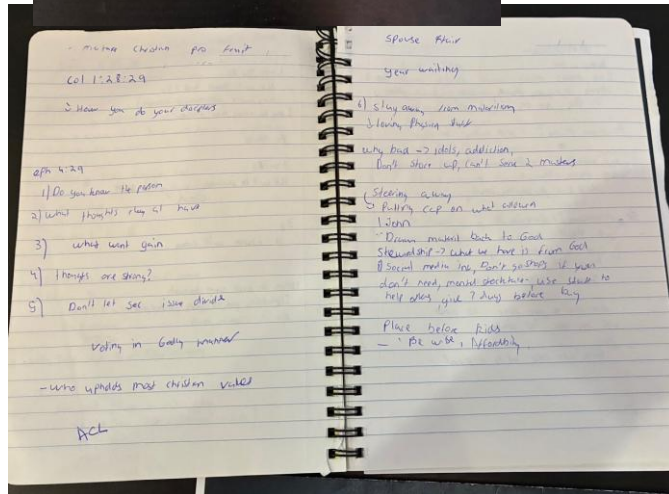 - mature Christian pro fruit
Col 1:28-29
↓ How you do your
eph 4:29
1) Do you know the person
2) What thoughts they have
3) what want gain
4) thoughts are strong?
5) Don't let sec issue divide
voting in Godly manner
- who upholds most christian values
ACL
Spouse
year waiting
6) Stay away from materialism
↓ loving Physical stuff
why bad -> idols, addiction,
Don't store up, can't serve 2 masters
Steering away
Putting cap on what
1 John
Drawn material back to God
Stewardship -> what we have is from God
Social media, Don't go shops if you
don't need, mental, use stuff to
help others, give 7 days before buy
Place before kids
- Be wise, Affordability